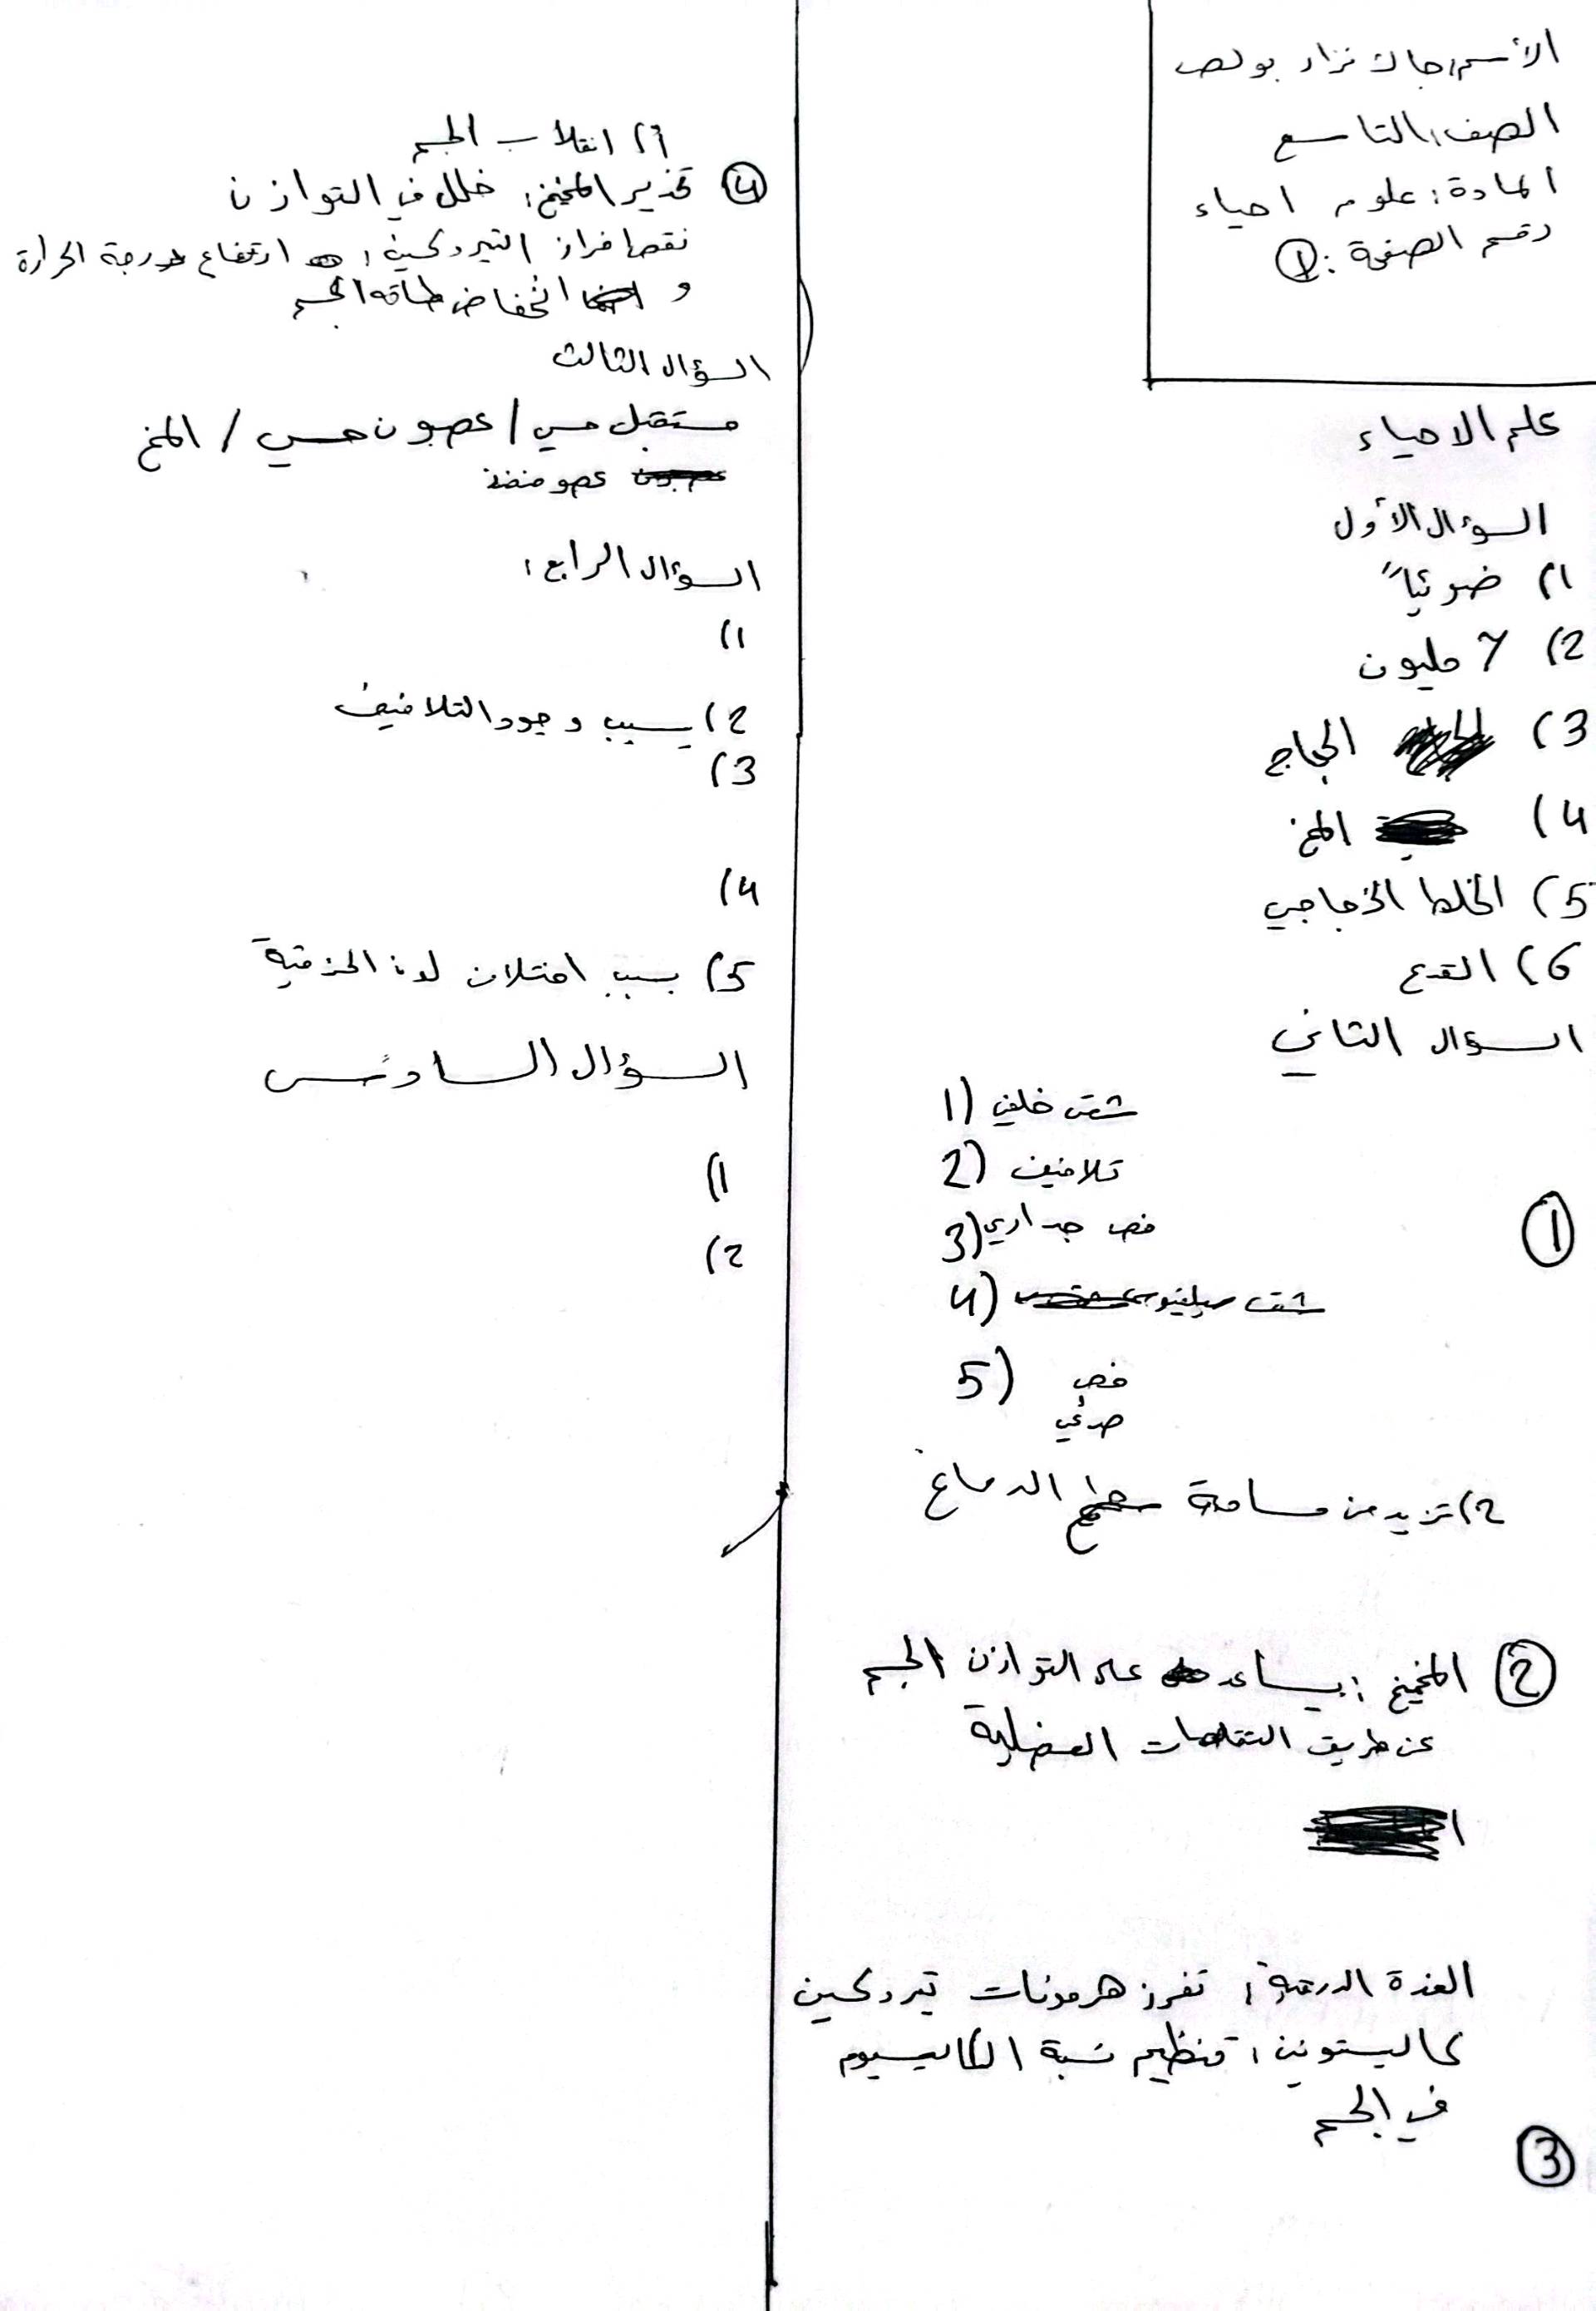 الأسم: جاك نزار بولص
الصف: التاسع
المادة: علوم احياء
رقم الصفحة: 1
علم الاحياء
السؤال الأول
1) ضوئياً
2) 7 مليون
3) الحجاج
4) المخ
5) الخلط الزجاجي
6) القدع
السؤال الثاني
1
1) شق خلفي
2) تلافيف
3) فص جداري
4) شق سيلفيوس
5) فص
صدغي
2) تزيد من مساحة سطح الدماغ
2 المخيخ: يساعد على التوازن الجسم
عن طريق التقلصات العضلية
الغدة الدرقية: تفرز هرمونات تيروكسين
كالسيتونين: تنظيم نسبة الكالسيوم
في الجسم
3
2) انقلاب الجسم
4 تخذير المخيخ: خلل في التوازن
نقص افراز التيروكسين: ارتفاع درجة الحرارة
و انخفاض طاقة الجسم
السؤال الثالث
مستقبل حسي / عصبون حسي / المخ
عضو منفذ
السؤال الرابع:
1)
2) بسبب وجود التلافيف
3)
4)
5) بسبب اختلاف لون القزحية
السؤال السادس
1)
2)